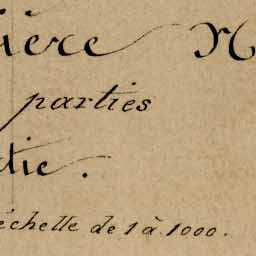 ière N
parties
tie.
échelle de 1 à 1000.